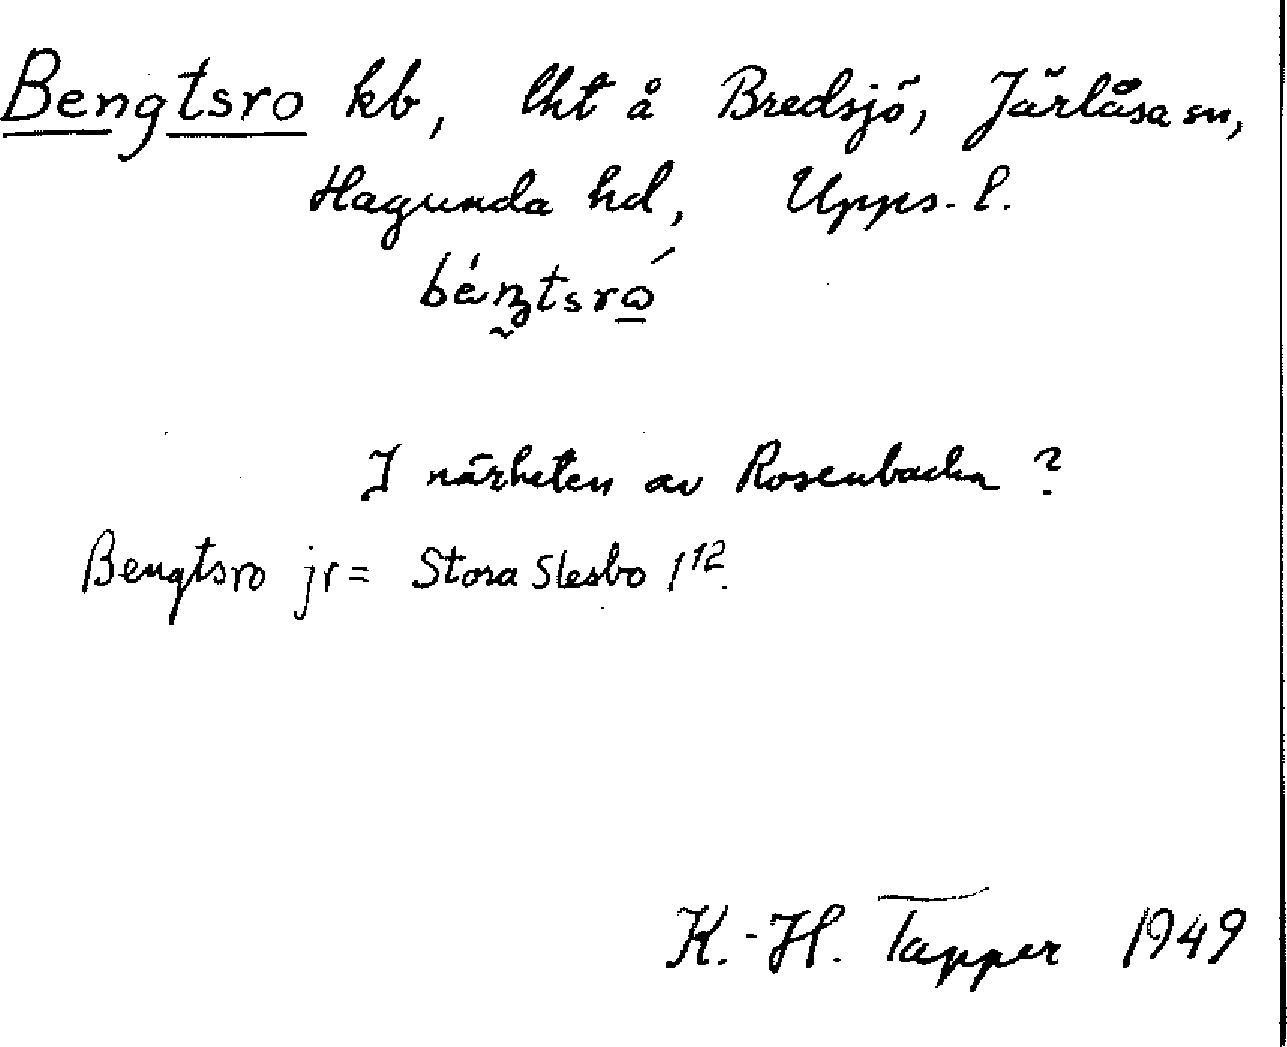 Bengtsro kb, lht å Bredsjö, Järlåsa sn,
Hagunda hd, Upps. l.
I närheten av Rosenbacka ?
Bengtsro jr = Stora Slesbo 1¹²
K.-H. Tapper 1949